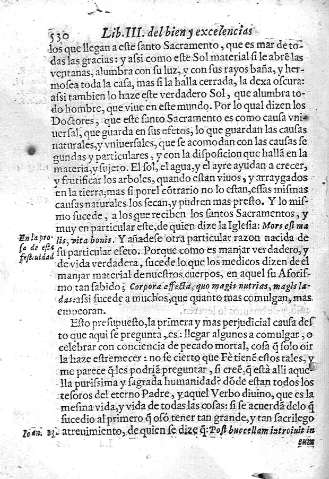 530 Lib. III. del bien y excelencias
dos que llegan a este santo Sacramento, que es mar de to-
das las gracias: y assi como este Sol material si le abrẽ las
ventanas, alumbra con su luz, y con sus rayos baña, y her-
mosea toda la casa, mas si la halla cerrada, la dexa oscura:
assi tambien lo haze este verdadero Sol, que alumbra to-
do hombre, que viue en este mundo. Por lo qual dizen los
Doctores, que este santo Sacramento es como causa vni-
uersal, que guarda en sus efetos, lo que guardan las causas
naturales, y vniuersales, que se acomodan con las causas se
gundas y particulares, y con la disposicion que hallã en la
materia, y sujeto. El sol, el agua, y el ayre ayudan a crecer,
y frutificar los arboles, quando estan viuos, y arraygados
en la tierra; mas si por el cotrario no lo estan, essas mismas
causas naturales los secan, y pudren mas presto. Y lo mis-
mo sucede, a los que reciben los santos Sacramentos, y
muy en particular este, de quien dize la Iglesia: Mors est ma
En la pro-
sa de esta
festiuidad
lis, vita bonis. Y añadese otra particular razon nacida de
su particular efeto. Porque como es manjar verdadero, y
de vida verdadera, sucede lo que los medicos dizen del
manjar material de nuestros cuerpos, en aquel su Aforis-
mo tan sabido: Corpora effecta, quo magis nutrias, magis la-
das: assi sucede a muchos, que quanto mas comulgan, mas
empeoran.
Esto presupuesto, la primera y mas perjudicial causa des
to que aqui se pregunta, es: llegar algunos a comulgar, o
celebrar con conciencia de pecado mortal, cosa q̃ solo oir
la haze estremecer: no se cierto que Fè tienẽ estos tales, y
me parece q̃ les podriẽ preguntar, si creẽ, q̃ està alli aque-
lla purissima y sagrada humanidad? dõde estan todos los
tesoros del eterno Padre, y aquel Verbo diuino, que es la
mesma vida, y vida de todas las cosas: si se acuerdã delo q̃
sucedio al primero q̃ osò tener tan grande, y tan sacrilego
Ioan. 13.
atreuimiento, de quien se dize q̃: Post buccellam introiuit in
eum